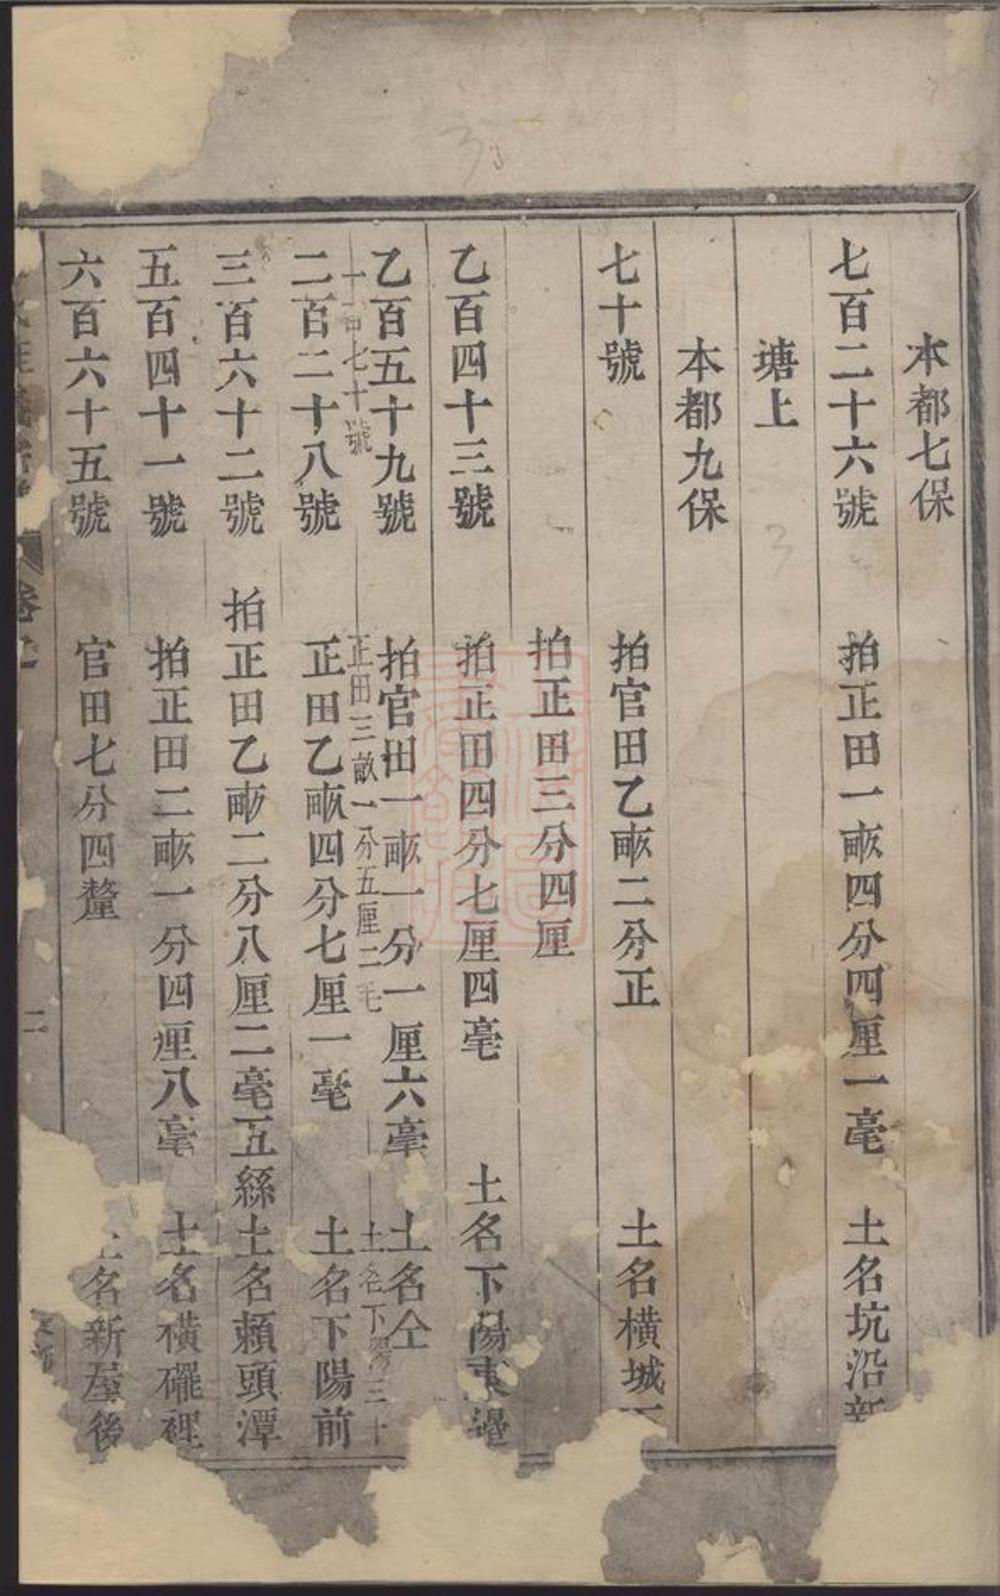 本都七保
七百二十六號 拍正田一畝四分四厘一毫 土名坑沿新
塘上
本都九保
七十號 拍官田乙畝二分正 土名橫城
拍正田三分四厘
乙百四十三號 拍正田四分七厘四毫 土名下陽東邊
乙百五十九號 拍官田一畝一分一厘六毫 土名仝
七十號 正田三畝一分五厘二毛 土名下陽三十
二百二十八號 正田乙畝四分七厘一毫 土名下陽前
三百六十二號 拍正田乙畝二分八厘二毫五絲 土名賴頭潭
五百四十一號 拍正田二畝一分四厘八毫 土名橫礶裡
六百六十五號 官田七分四釐 土名新屋後
卷
二